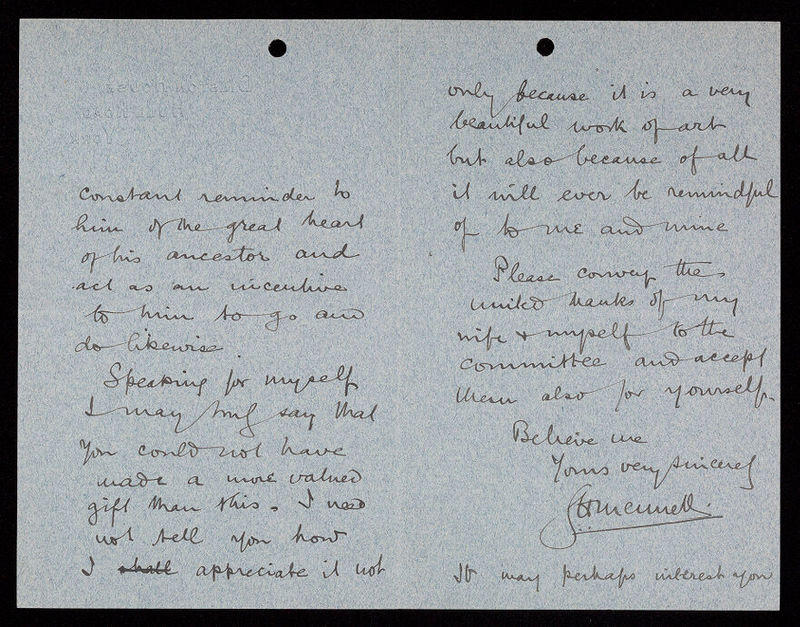 constant reminder to
him of the great heart
of his ancestor and
act as an incentive
to him to go and
do likewise.
Speaking for myself
I may truly say that
you could not have
made a more valued
gift than this. I need
not tell you how
I shall appreciate it not
only because it is a very
beautiful work of art
but also because of all
it will ever be remindful
of to me and mine
Please convey the
united thanks of my
wife & myself to the
committee and accept
them also for yourself.
Believe me
Yours very sincerely
It may perhaps interest you